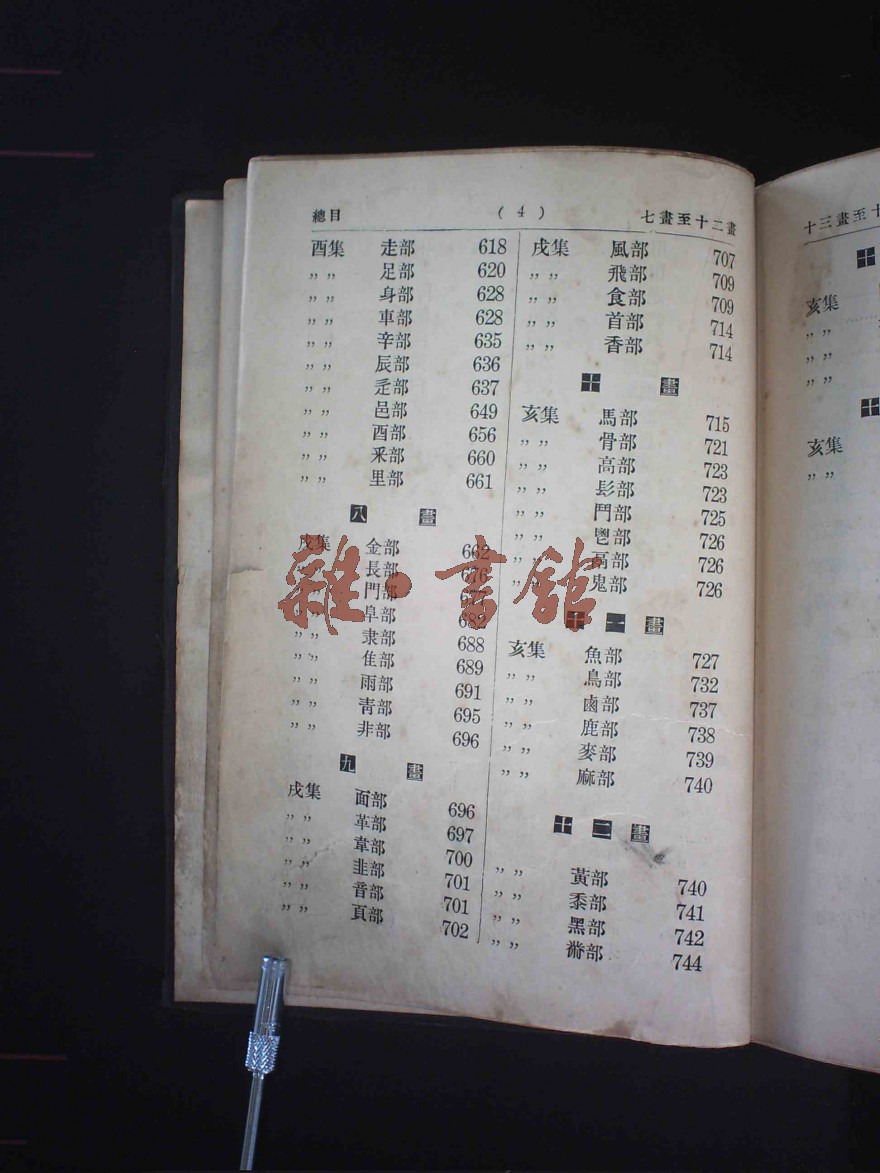 總目 (4) 七畫至十二畫
酉集 走部 618
〃〃 足部 620
〃〃 身部 628
〃〃 車部 628
〃〃 辛部 635
〃〃 辰部 636
〃〃 辵部 637
〃〃 邑部 649
〃〃 酉部 656
〃〃 釆部 660
〃〃 里部 661
八畫
戌集 金部 662
〃〃 長部 676
〃〃 門部 677
〃〃 阜部 682
〃〃 隶部 688
〃〃 隹部 689
〃〃 雨部 691
〃〃 靑部 695
〃〃 非部 696
九畫
戌集 面部 696
〃〃 革部 697
〃〃 韋部 700
〃〃 韭部 701
〃〃 音部 701
〃〃 頁部 702
戌集 風部 707
〃〃 飛部 709
〃〃 食部 709
〃〃 首部 714
〃〃 香部 714
十畫
亥集 馬部 715
〃〃 骨部 721
〃〃 高部 723
〃〃 髟部 723
〃〃 鬥部 725
〃〃 鬯部 726
〃〃 鬲部 726
〃〃 鬼部 726
十一畫
亥集 魚部 727
〃〃 鳥部 732
〃〃 鹵部 737
〃〃 鹿部 738
〃〃 麥部 739
〃〃 麻部 740
十二畫
〃〃 黃部 740
〃〃 黍部 741
〃〃 黑部 742
〃〃 黹部 744
雜·書館
十三畫至十
十
亥集
〃〃
〃〃
〃〃
十
亥集
〃〃